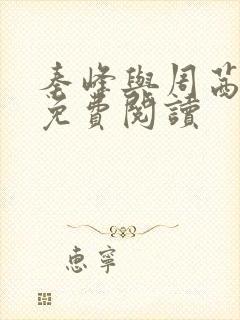 秦峰與周茜
免費閱讀
惠寧